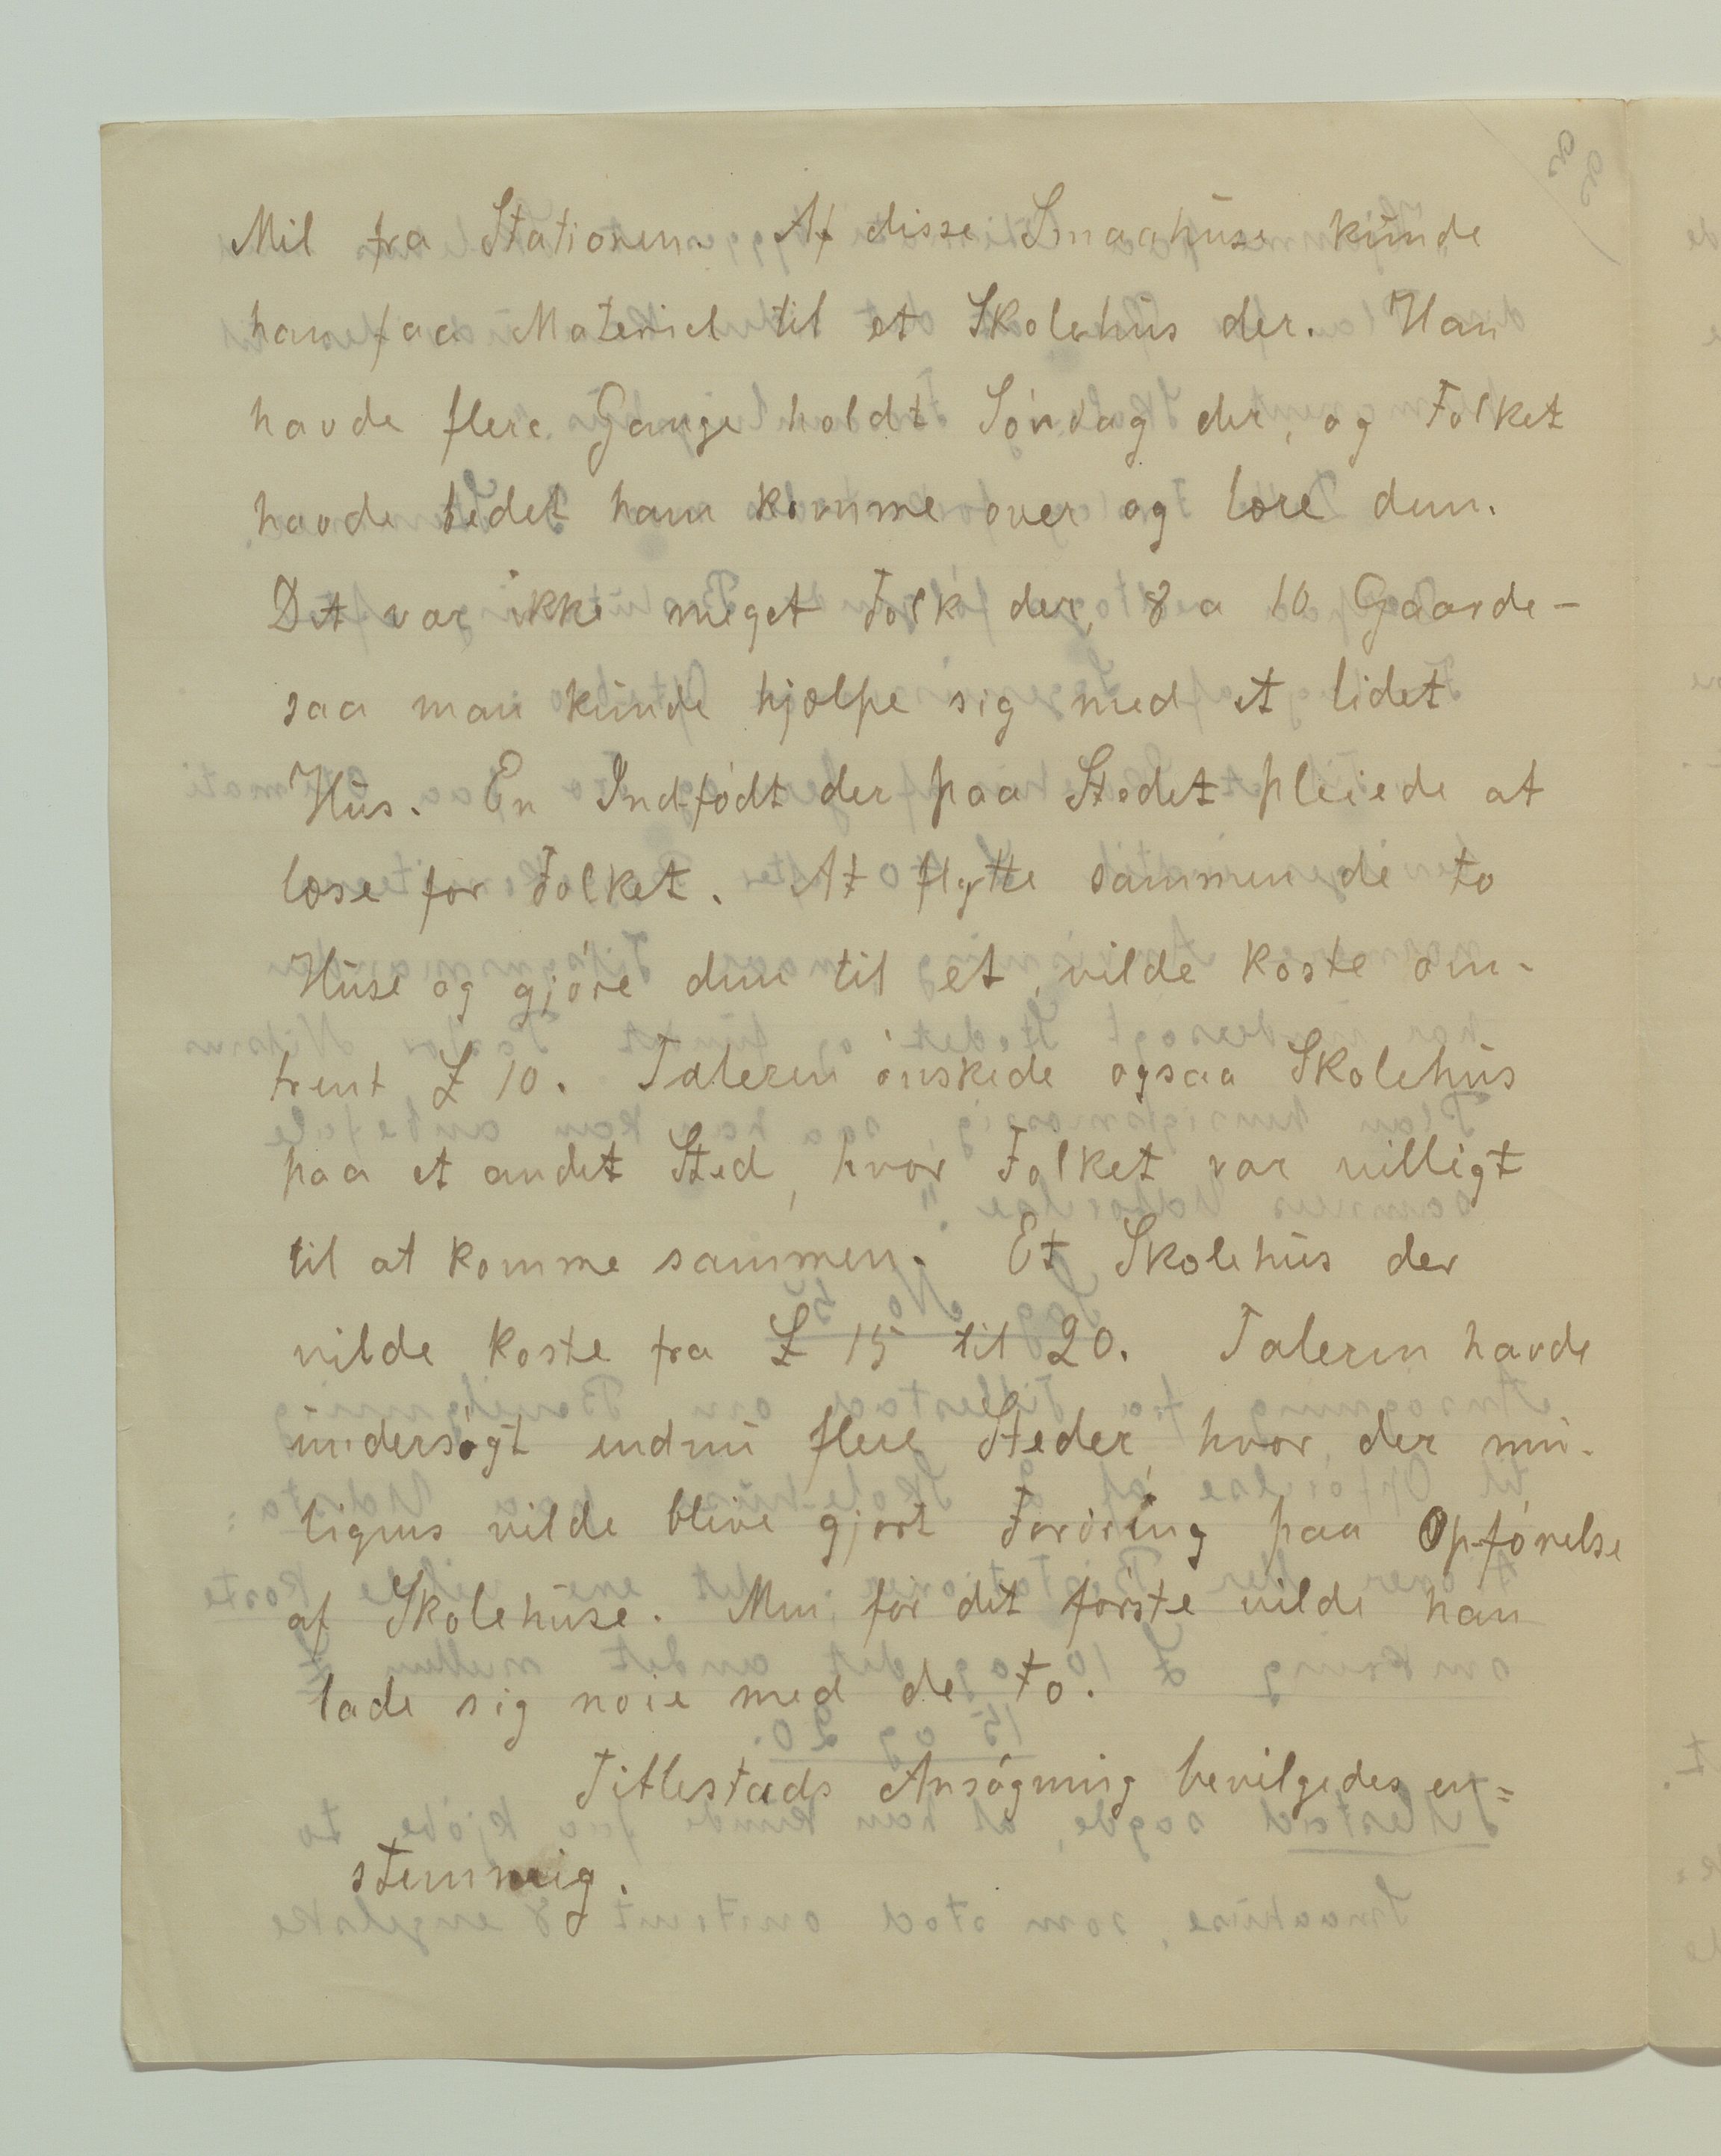 Mil fra Stationen. Af disse Smaahuse kunde
han faa Materiel til et Skolehus der. Han
havde flere Gange holdt Søndag der, og Folket
havde bedet ham komme over og lære dem.
Det var ikke meget Folk der, 8 a 10 Gaarde -
saa man kunde hjælpe sig med et lidet
Hus. En Indfødt der paa Stedet pleiede at
læse for Folket. At flytte sammen de to
Huse og gjøre dem til et, vilde koste om-
trent £ 10. Taleren ønskede ogsaa Skolehus
paa et andet Sted, hvor Folket var villigt
til at komme sammen. Et Skolehus der
vilde koste fra £ 15 til 20. Taleren havde
undersøgt endnu flere Steder, hvor der mu-
ligens vilde blive gjort Fordring paa Opførelse
af Skolehuse. Men for det første vilde han
lade sig nøie med de to.
Titlestads Ansøgning bevilgedes en=
stemmig.